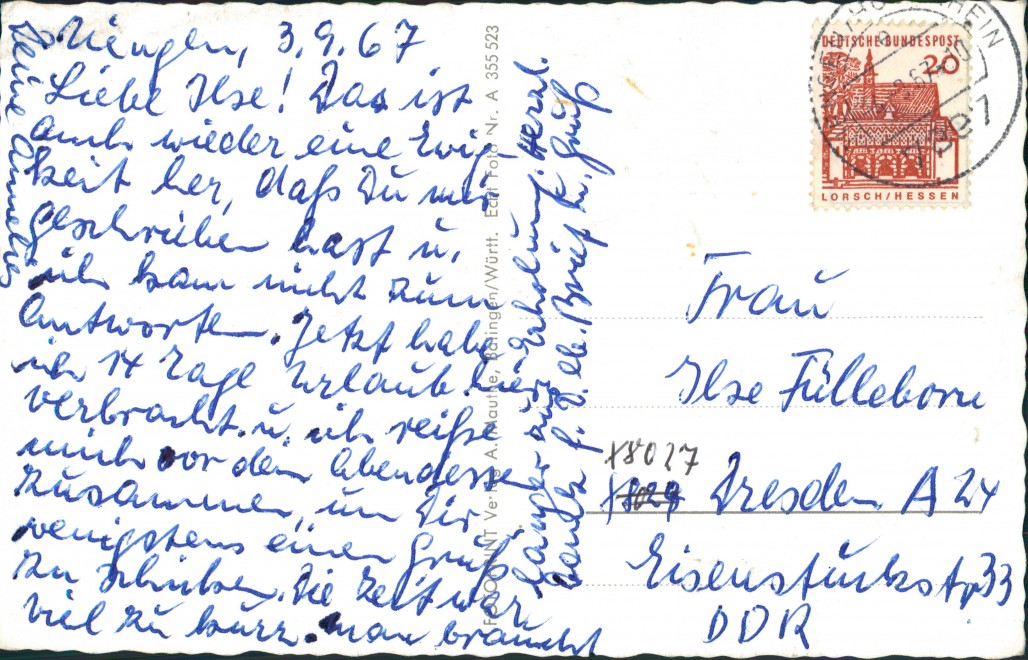 Riengen, 3.9.67
Liebe Ilse! Das ist
auch wieder eine Ewig-
keit her, daß Du mir
geschrieben hast u.
ich kam nicht zum
Antworten. Jetzt habe
ich 14 Tage Urlaub hier
verbracht u. ich reiße
mich vor dem Abendessen
zusammen, um Dir
wenigstens einen Gruß
zu schicken. Die Zeit war
viel zu kurz. Man braucht
länger zur Erholung. Herzl.
Dank f. D. lb. Brief u. Gruß
Deine Annelies
FOTOPRINT A. Mauthe, Balingen/Württ. Echt Foto Nr. A 355 523
DEUTSCHE BUNDESPOST
20
LORSCH/HESSEN
7891
Frau
Ilse Fülleborn
X8027
Dresden A 24
Eisenstuckstr 33
DDR